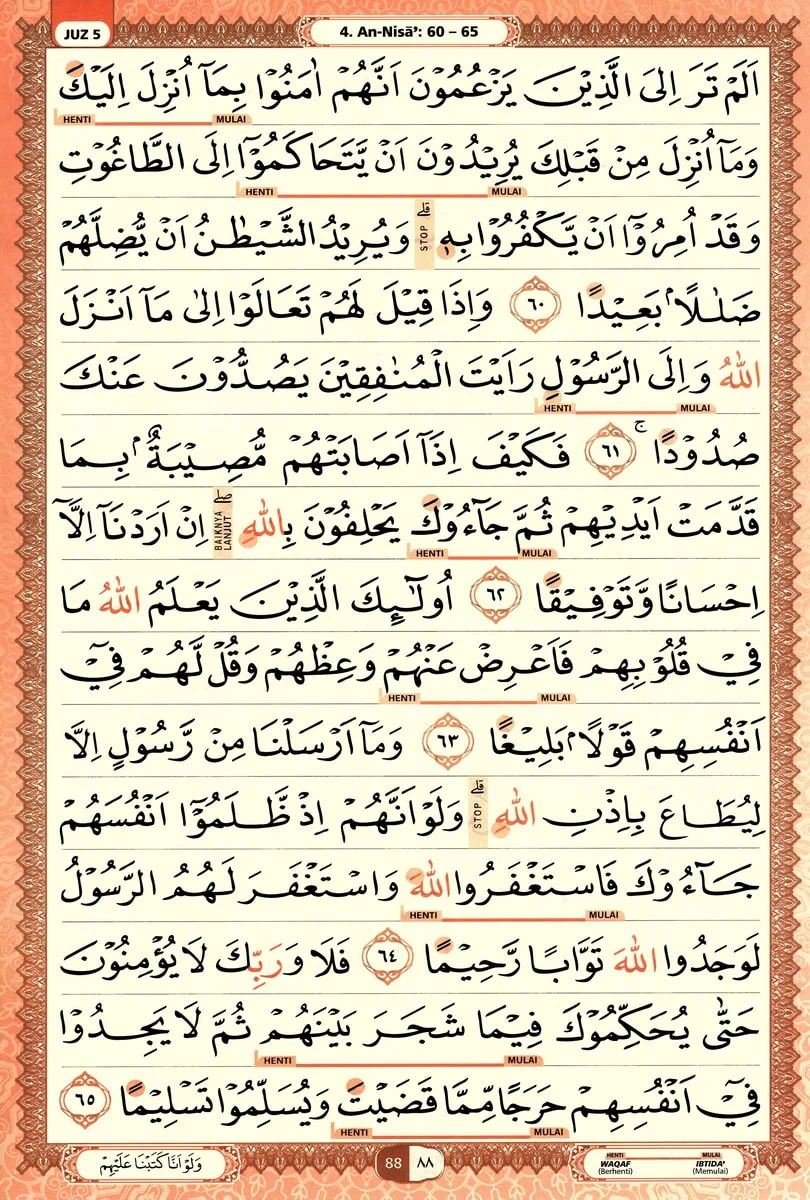 JUZ 5
4. An-Nisā’: 60 – 65
اَلَمْ تَرَ اِلَى الَّذِيْنَ يَزْعُمُوْنَ اَنَّهُمْ اٰمَنُوْا بِمَآ اُنْزِلَ اِلَيْكَ
HENTI MULAI
وَمَآ اُنْزِلَ مِنْ قَبْلِكَ يُرِيْدُوْنَ اَنْ يَّتَحَاكَمُوْٓا اِلَى الطَّاغُوْتِ
HENTI MULAI
وَقَدْ اُمِرُوْٓا اَنْ يَّكْفُرُوْا بِهٖ ۗ STOP وَيُرِيْدُ الشَّيْطٰنُ اَنْ يُّضِلَّهُمْ
ضَلٰلًا ۢ بَعِيْدًا ٦٠ وَاِذَا قِيْلَ لَهُمْ تَعَالَوْا اِلٰى مَآ اَنْزَلَ
اللّٰهُ وَاِلَى الرَّسُوْلِ رَاَيْتَ الْمُنٰفِقِيْنَ يَصُدُّوْنَ عَنْكَ
HENTI MULAI
صُدُوْدًا ۚ ٦١ فَكَيْفَ اِذَآ اَصَابَتْهُمْ مُّصِيْبَةٌ ۢ بِمَا
قَدَّمَتْ اَيْدِيْهِمْ ثُمَّ جَاۤءُوْكَ يَحْلِفُوْنَ بِاللّٰهِ ۖ BAIKNYA LANJUT اِنْ اَرَدْنَآ اِلَّآ
HENTI MULAI
اِحْسَانًا وَّتَوْفِيْقًا ٦٢ اُولٰۤىِٕكَ الَّذِيْنَ يَعْلَمُ اللّٰهُ مَا
فِيْ قُلُوْبِهِمْ فَاَعْرِضْ عَنْهُمْ وَعِظْهُمْ وَقُلْ لَّهُمْ فِيْٓ
HENTI MULAI
اَنْفُسِهِمْ قَوْلًا ۢ بَلِيْغًا ٦٣ وَمَآ اَرْسَلْنَا مِنْ رَّسُوْلٍ اِلَّا
لِيُطَاعَ بِاِذْنِ اللّٰهِ ۗ STOP وَلَوْ اَنَّهُمْ اِذْ ظَّلَمُوْٓا اَنْفُسَهُمْ
جَاۤءُوْكَ فَاسْتَغْفَرُوا اللّٰهَ وَاسْتَغْفَرَ لَهُمُ الرَّسُوْلُ
HENTI MULAI
لَوَجَدُوا اللّٰهَ تَوَّابًا رَّحِيْمًا ٦٤ فَلَا وَرَبِّكَ لَا يُؤْمِنُوْنَ
حَتّٰى يُحَكِّمُوْكَ فِيْمَا شَجَرَ بَيْنَهُمْ ثُمَّ لَا يَجِدُوْا
HENTI MULAI
فِيْٓ اَنْفُسِهِمْ حَرَجًا مِّمَّا قَضَيْتَ وَيُسَلِّمُوْا تَسْلِيْمًا ٦٥
HENTI MULAI
وَلَوْ اَنَّا كَتَبْنَا عَلَيْهِمْ
88 ٨٨
HENTI MULAI
WAQAF IBTIDA’
(Berhenti) (Memulai)